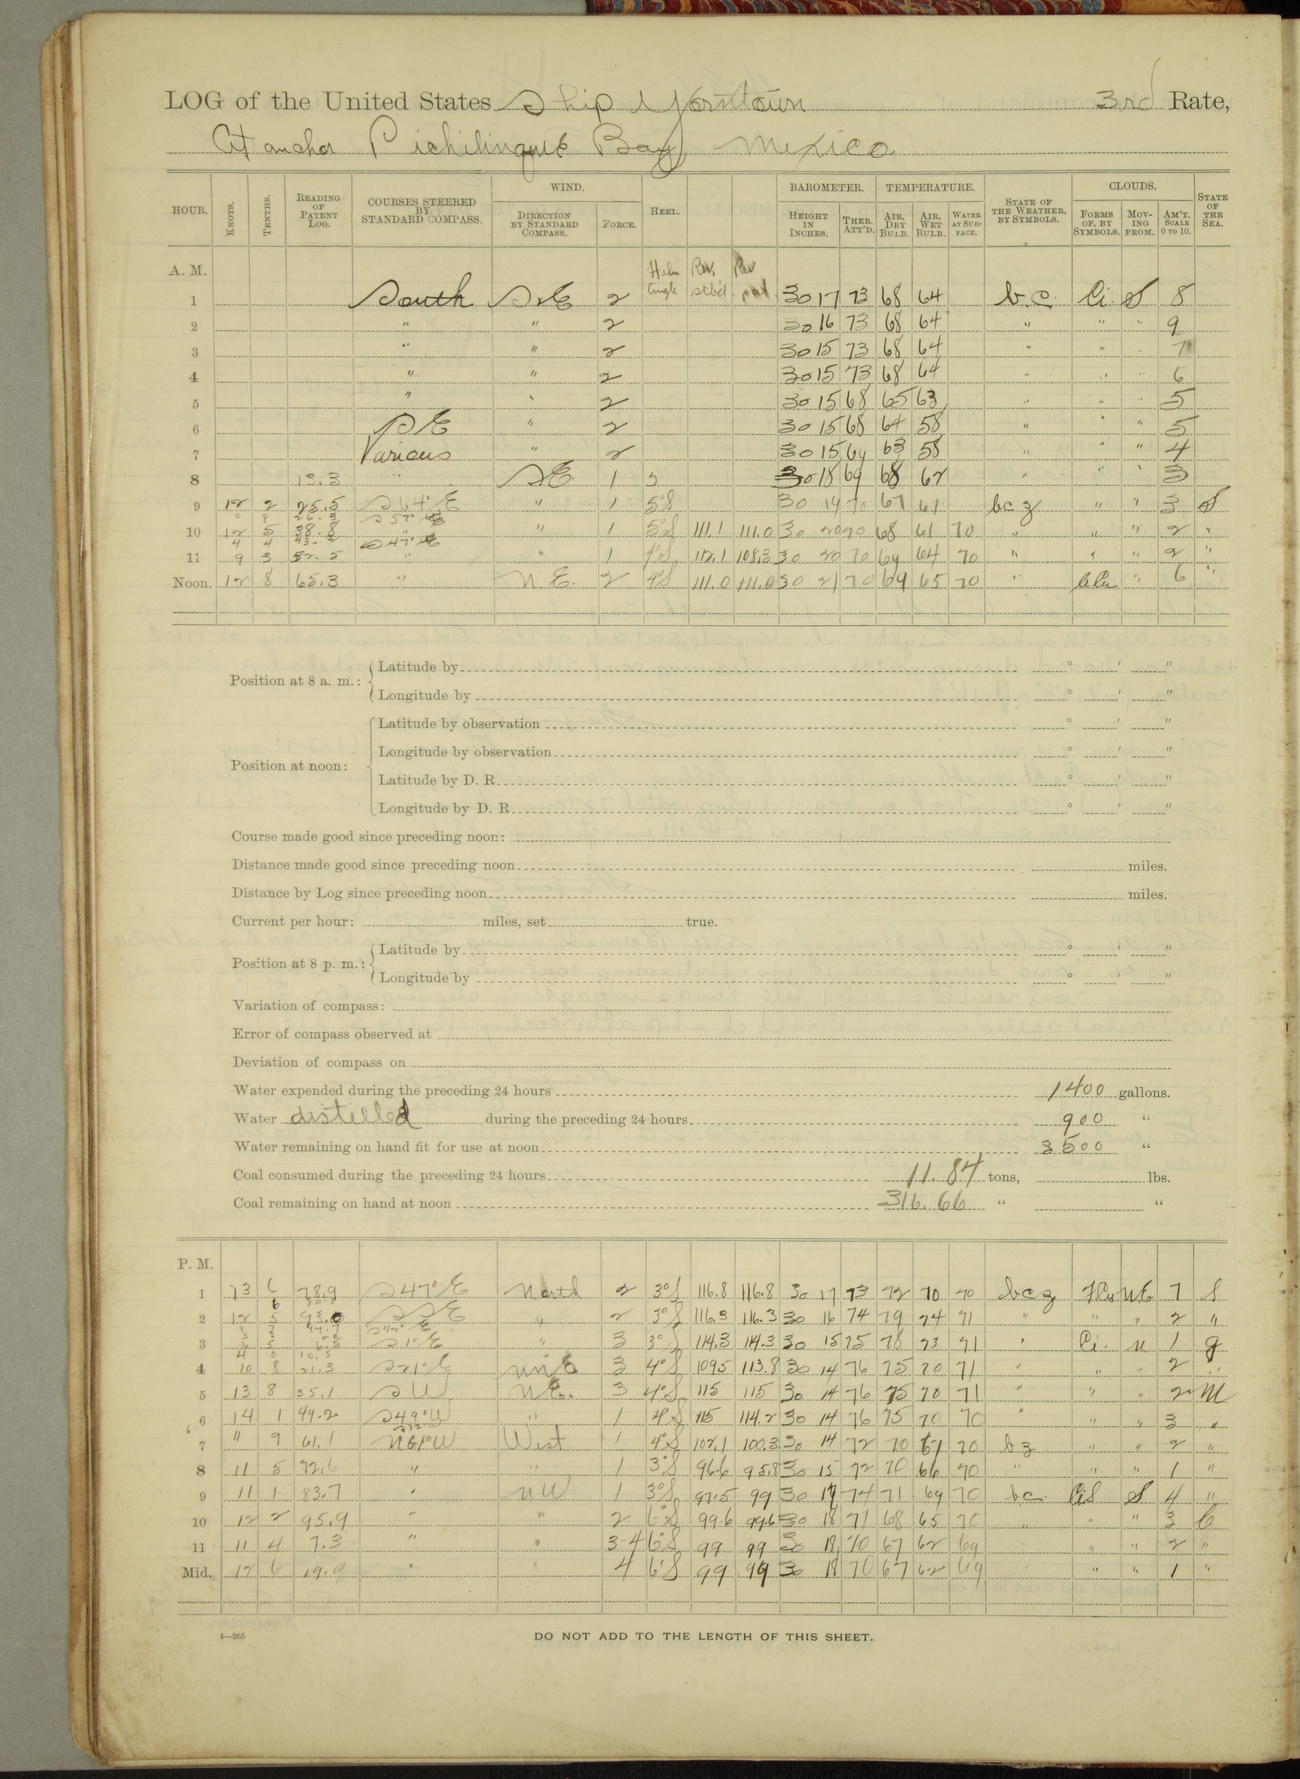 LOG of the United States Ship Yorktown 3rd Rate,
At anchor Pichilinque Bay Mexico
HOUR. KNOTS. TENTHS. READING OF PATENT LOG. COURSES STEERED BY STANDARD COMPASS. WIND. DIRECTION BY STANDARD COMPASS. FORCE. HEEL. BAROMETER. HEIGHT IN INCHES. THER. ATT'D. TEMPERATURE. AIR, DRY BULB. AIR, WET BULB. WATER AT SURFACE. STATE OF THE WEATHER, BY SYMBOLS. CLOUDS. FORMS OF, BY SYMBOLS. MOVING FROM. AM'T. SCALE 0 TO 10. STATE OF THE SEA.
A. M. Helm Angle Rev. stbd. Rev port
1 South SxE 2 30 17 73 68 64 b.c. Ci. S 8
2 " " 2 30 16 73 68 64 " " " 9
3 " " 2 30 15 73 68 64 " " " 7
4 " " 2 30 15 73 68 64 " " " 6
5 " " 2 30 15 68 65 63 " " " 5
6 SE " 2 30 15 68 64 58 " " " 5
7 Various " 2 30 15 69 63 58 " " 4
8 13.3 " SE 1 30 18 69 68 62 " " " 3
9 12 2 25.5 S64°E " 1 5°S 30 19 70 67 61 bcz " " 3 S
10 12 5 38.8 " 1 5°S 111.1 111.0 30 20 70 68 61 70 " " " 2 "
11 9 3 52.5 " " 1 4°S 112.1 108.3 30 20 70 69 64 70 " " " 2 "
Noon. 12 8 65.3 " N.E. 2 4°S 111.0 111.0 30 21 70 69 65 70 " " 6 "
Position at 8 a. m.: Latitude by ° ′ ″
Longitude by ° ′ ″
Position at noon: Latitude by observation ° ′ ″
Longitude by observation ° ′ ″
Latitude by D. R. ° ′ ″
Longitude by D. R. ° ′ ″
Course made good since preceding noon:
Distance made good since preceding noon miles.
Distance by Log since preceding noon miles.
Current per hour: miles, set true.
Position at 8 p. m.: Latitude by ° ′ ″
Longitude by ° ′ ″
Variation of compass:
Error of compass observed at
Deviation of compass on
Water expended during the preceding 24 hours 1400 gallons.
Water distilled during the preceding 24 hours 900 "
Water remaining on hand fit for use at noon 3500 "
Coal consumed during the preceding 24 hours 11.84 tons, lbs.
Coal remaining on hand at noon 316.66 " "
P. M.
1 13 6 78.9 S47°E North 2 3°S 116.8 116.8 30 17 73 72 70 70 bcz NE 7 S
2 12 5 SSE " 2 3°S 116.3 116.3 30 16 74 79 74 71 " " " 2 "
3 S1°E " 3 3°S 114.3 114.3 30 15 75 78 73 71 " Ci. N 1 g
4 10 8 21.3 S21°E NNE 3 4°S 109.5 113.8 30 14 76 75 70 71 " " " 2 :
5 13 8 35.1 SW NE. 3 4°S 115 115 30 14 76 75 70 71 " " " 2 M
6 14 1 49.2 S49°W " 1 4°S 115 114.2 30 14 76 75 70 70 " " " 3 "
7 " 9 61.1 N61°W West 1 4°S 102.1 100.3 30 14 72 70 67 70 bz " " 2 "
8 11 5 72.6 " " 1 3°S 96.6 95.8 30 15 72 70 66 70 " " " 1 "
9 11 1 83.7 " NW 1 3°S 97.5 99 30 17 74 71 69 70 bc CiS S 4 "
10 12 2 95.9 " " 2 6°S 99.6 99.6 30 18 71 68 65 70 " " " 3 C
11 11 4 7.3 " " 3-4 6°S 99 99 30 18 70 67 62 69 " " 2 "
Mid. 12 6 19.9 " " 4 6°S 99 99 30 18 70 67 62 69 " " 1 "
4—265
DO NOT ADD TO THE LENGTH OF THIS SHEET.